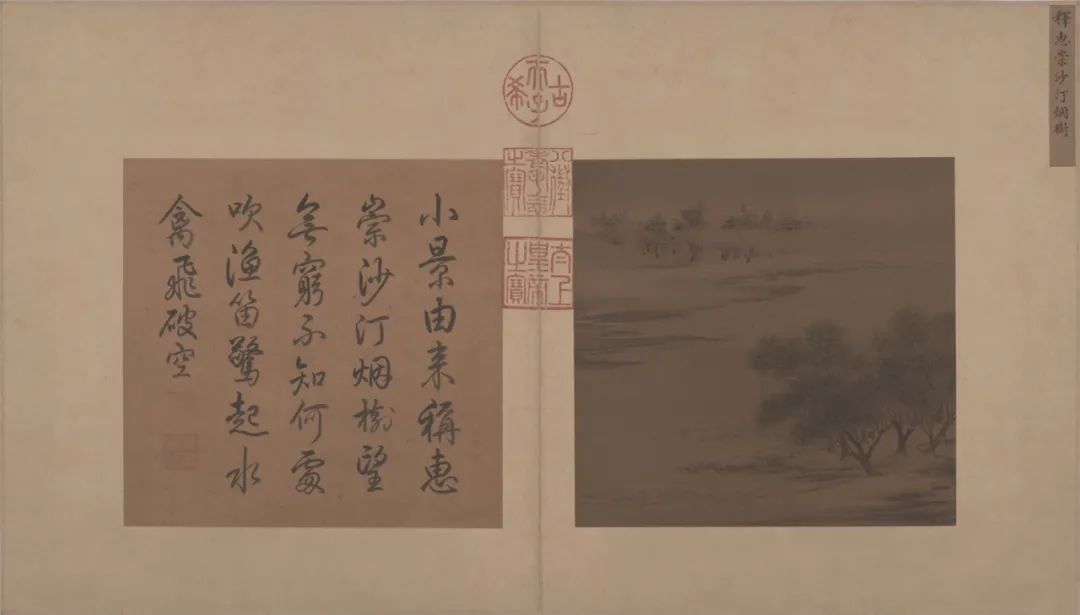 釋惠崇沙汀烟樹
古希天子
八徵耄念之寶
太上皇帝之寶
小景由来稱惠
崇沙汀烟樹望
無窮不知何處
吹漁笛驚起水
禽飛破空